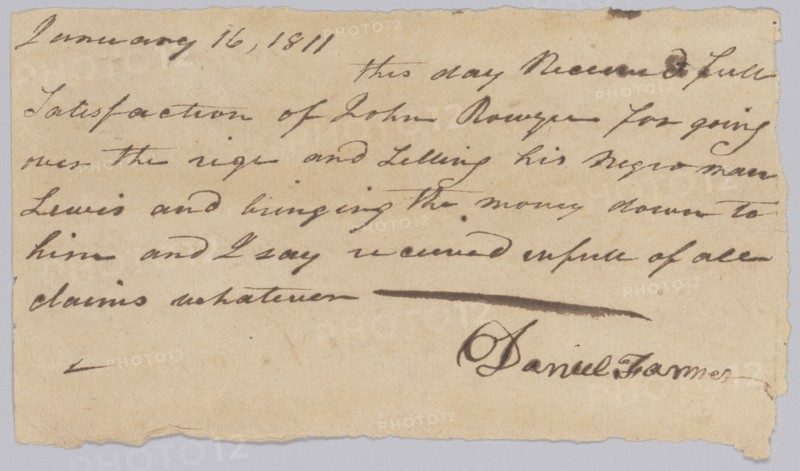 January 16, 1811
this day Received full
Satisfaction of John Rowzee for going
over the rige and Selling his Negro man
Lewis and bringing the money down to
him and I say received in full of all
claims whatever
Daniel Farmer
PHOTO12